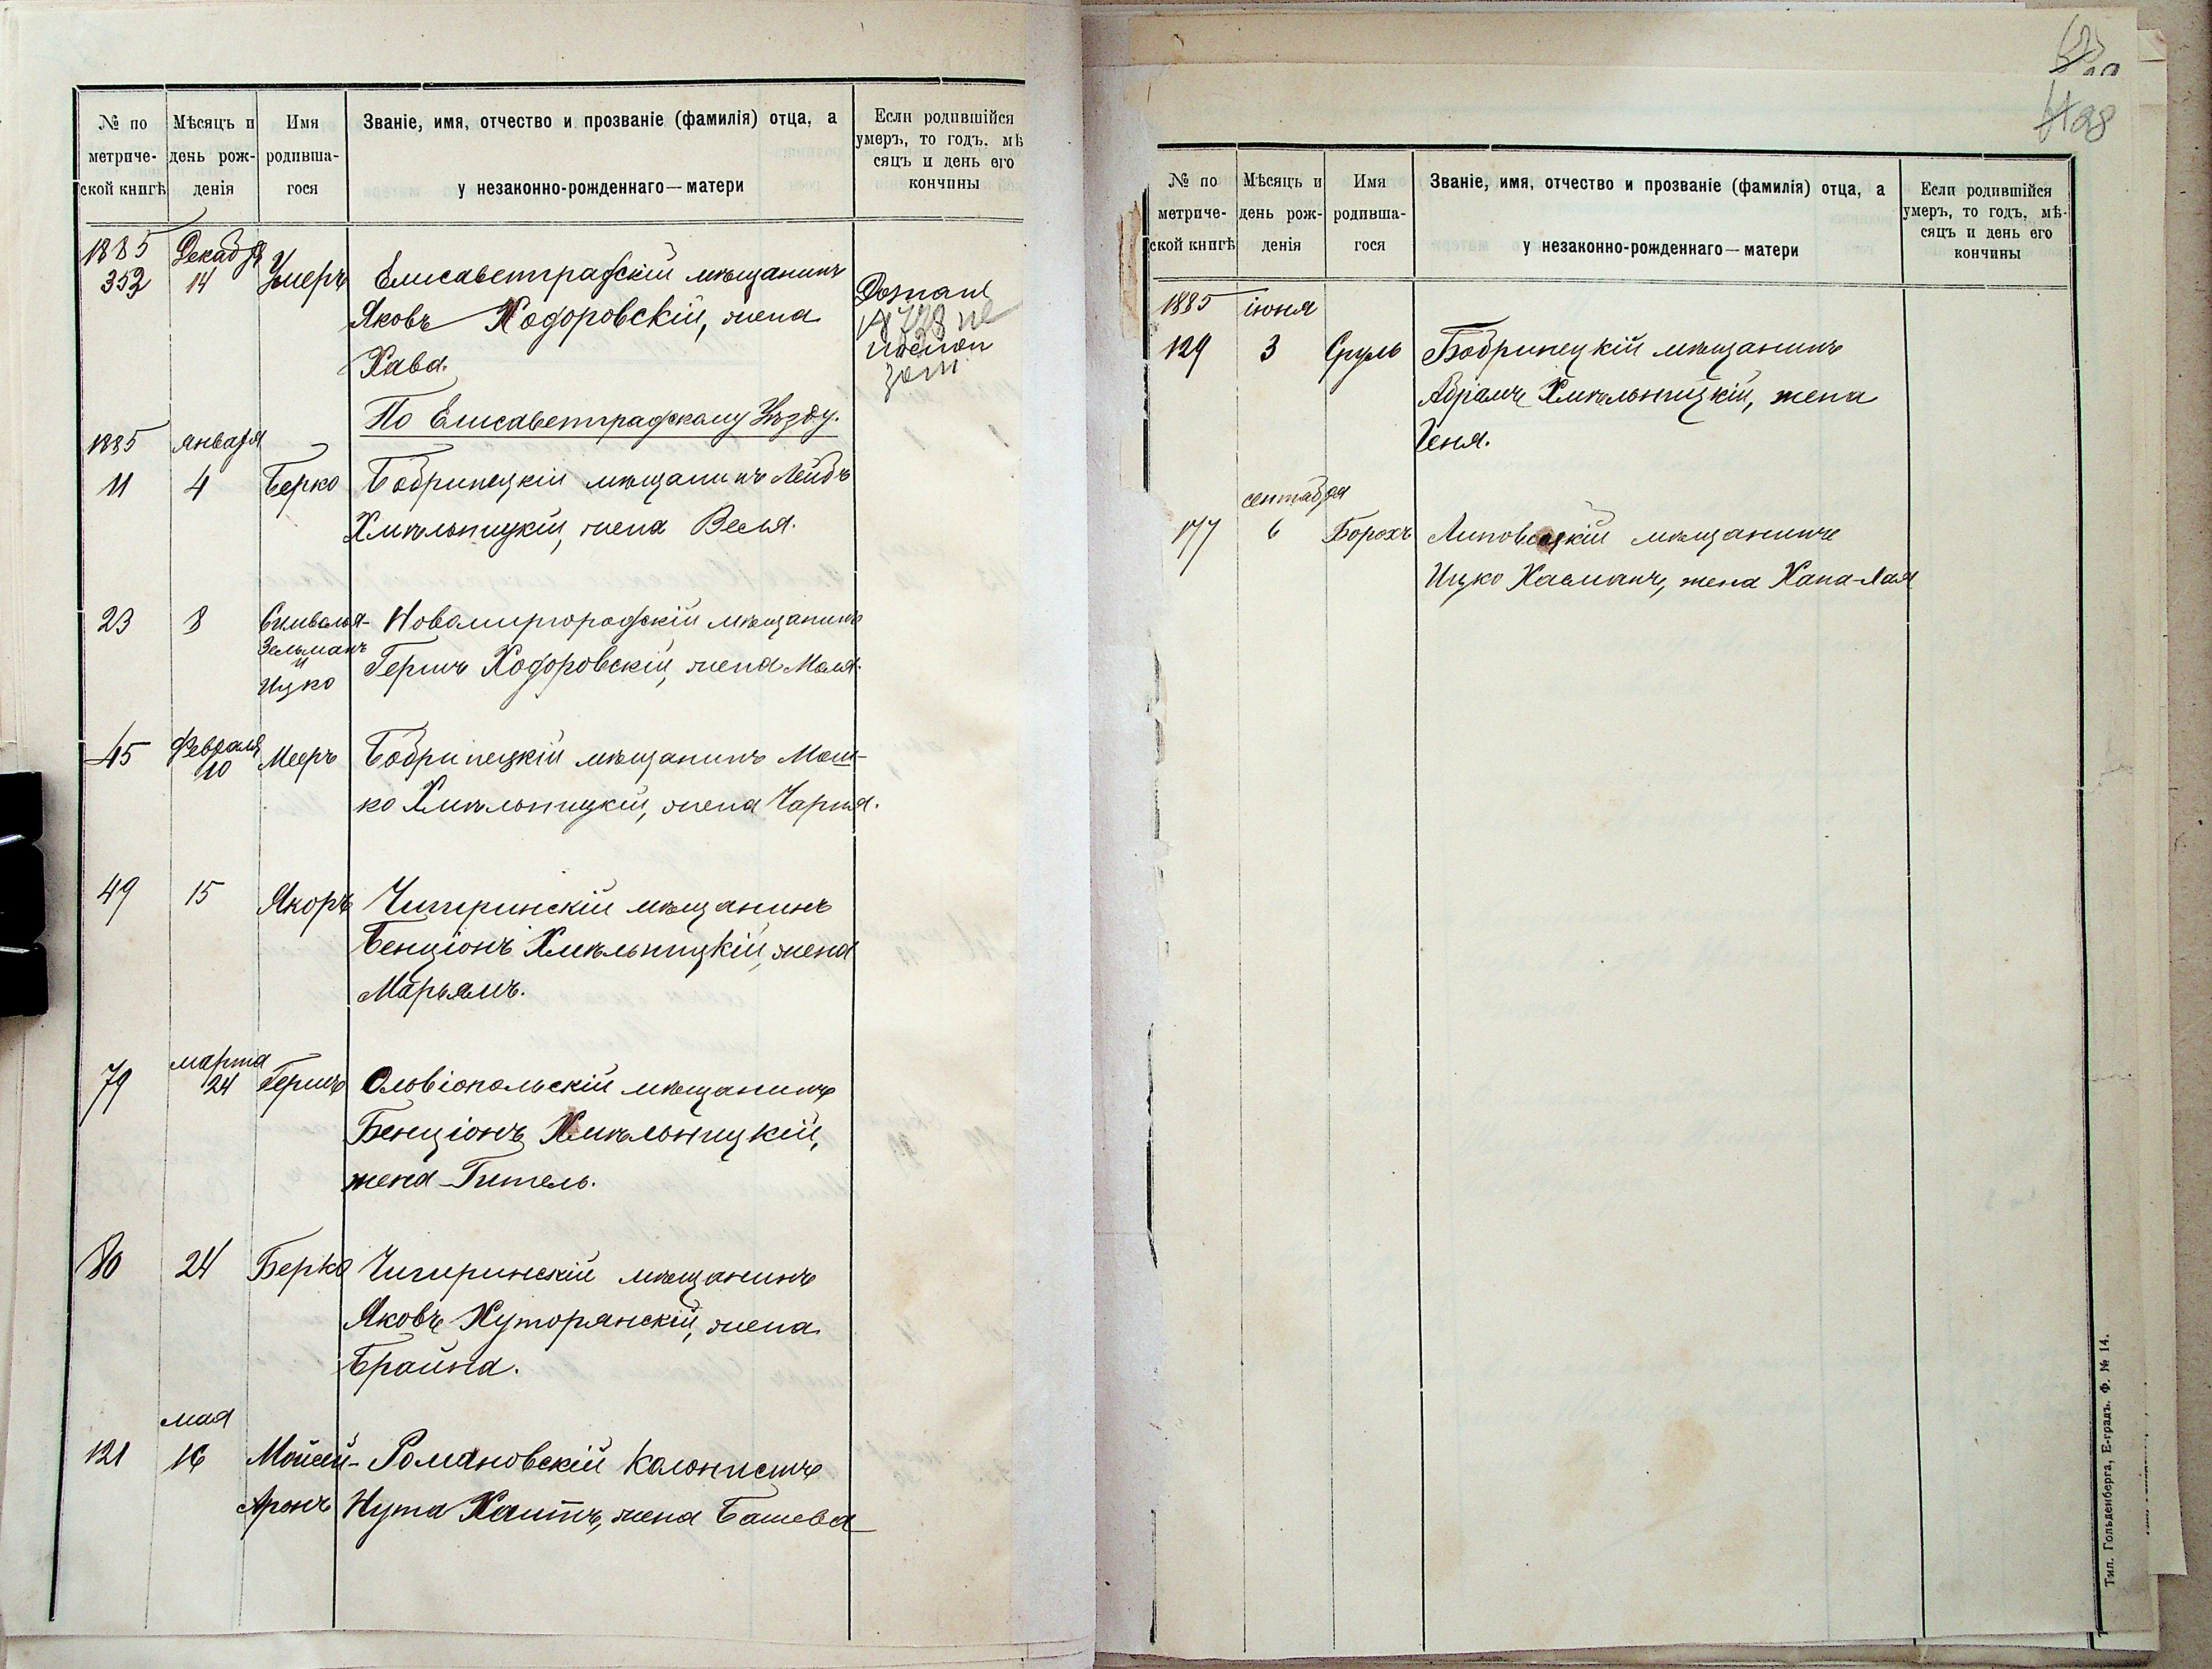 № по метриче-ской книгѣ
Мѣсяцъ и день рож-денія
Имя родивша-гося
Званіе, имя, отчество и прозваніе (фамилія) отца, а у незаконно-рожденнаго—матери
Если родившійся умеръ, то годъ, мѣ сяцъ и день его кончины
1885 Декабря
352 14 Умеръ Елисаветградскій мѣщанинъ
Яковъ Ходоровскій, жена
Хава.
По Елисаветградскому Уѣзду.
1885 января
11 4 Берко Бобринецкій мѣщанинъ Лейбъ
Хмѣльницкій, жена Веся.
23 8 Новомиргородскій мѣщанинъ
Зельманъ
и
Ицко Гершъ Ходоровскій, жена Маля.
45 февраля 10 Мееръ Бобринецкій мѣщанинъ Мош-
ко Хмѣльницкій, жена Чарна.
49 15 Якоръ Чигиринскій мѣщанинъ
Бенціонъ Хмѣльницкій, жена
Марьямъ.
марта
79 24 Гершъ Ольвіопольскій мѣщанинъ
Бенціонъ Хмѣльницкій,
жена Гитель.
80 24 Берко Чигиринскій мѣщанинъ
Яковъ Хуторянскій, жена
Брайна.
мая
121 16 Мойсей- Романовскій колонистъ
Аронъ Нута Хаитъ, жена Башева
98
№ по метриче-ской книгѣ
Мѣсяцъ и день рож-денія
Имя родивша-гося
Званіе, имя, отчество и прозваніе (фамилія) отца, а у незаконно-рожденнаго—матери
Если родившійся умеръ, то годъ, мѣ-сяцъ и день его кончины
1885 іюня
129 3 Сруль Бобринецкій мѣщанинъ
Абрамъ Хмѣльницкій, жена
Геня.
сентября
177 6 Борохъ Липовецкій мѣщанинъ
Ицко Хасманъ, жена Хана-Лая
Тип. Гольденберга, Е-градъ. Ф. № 14.